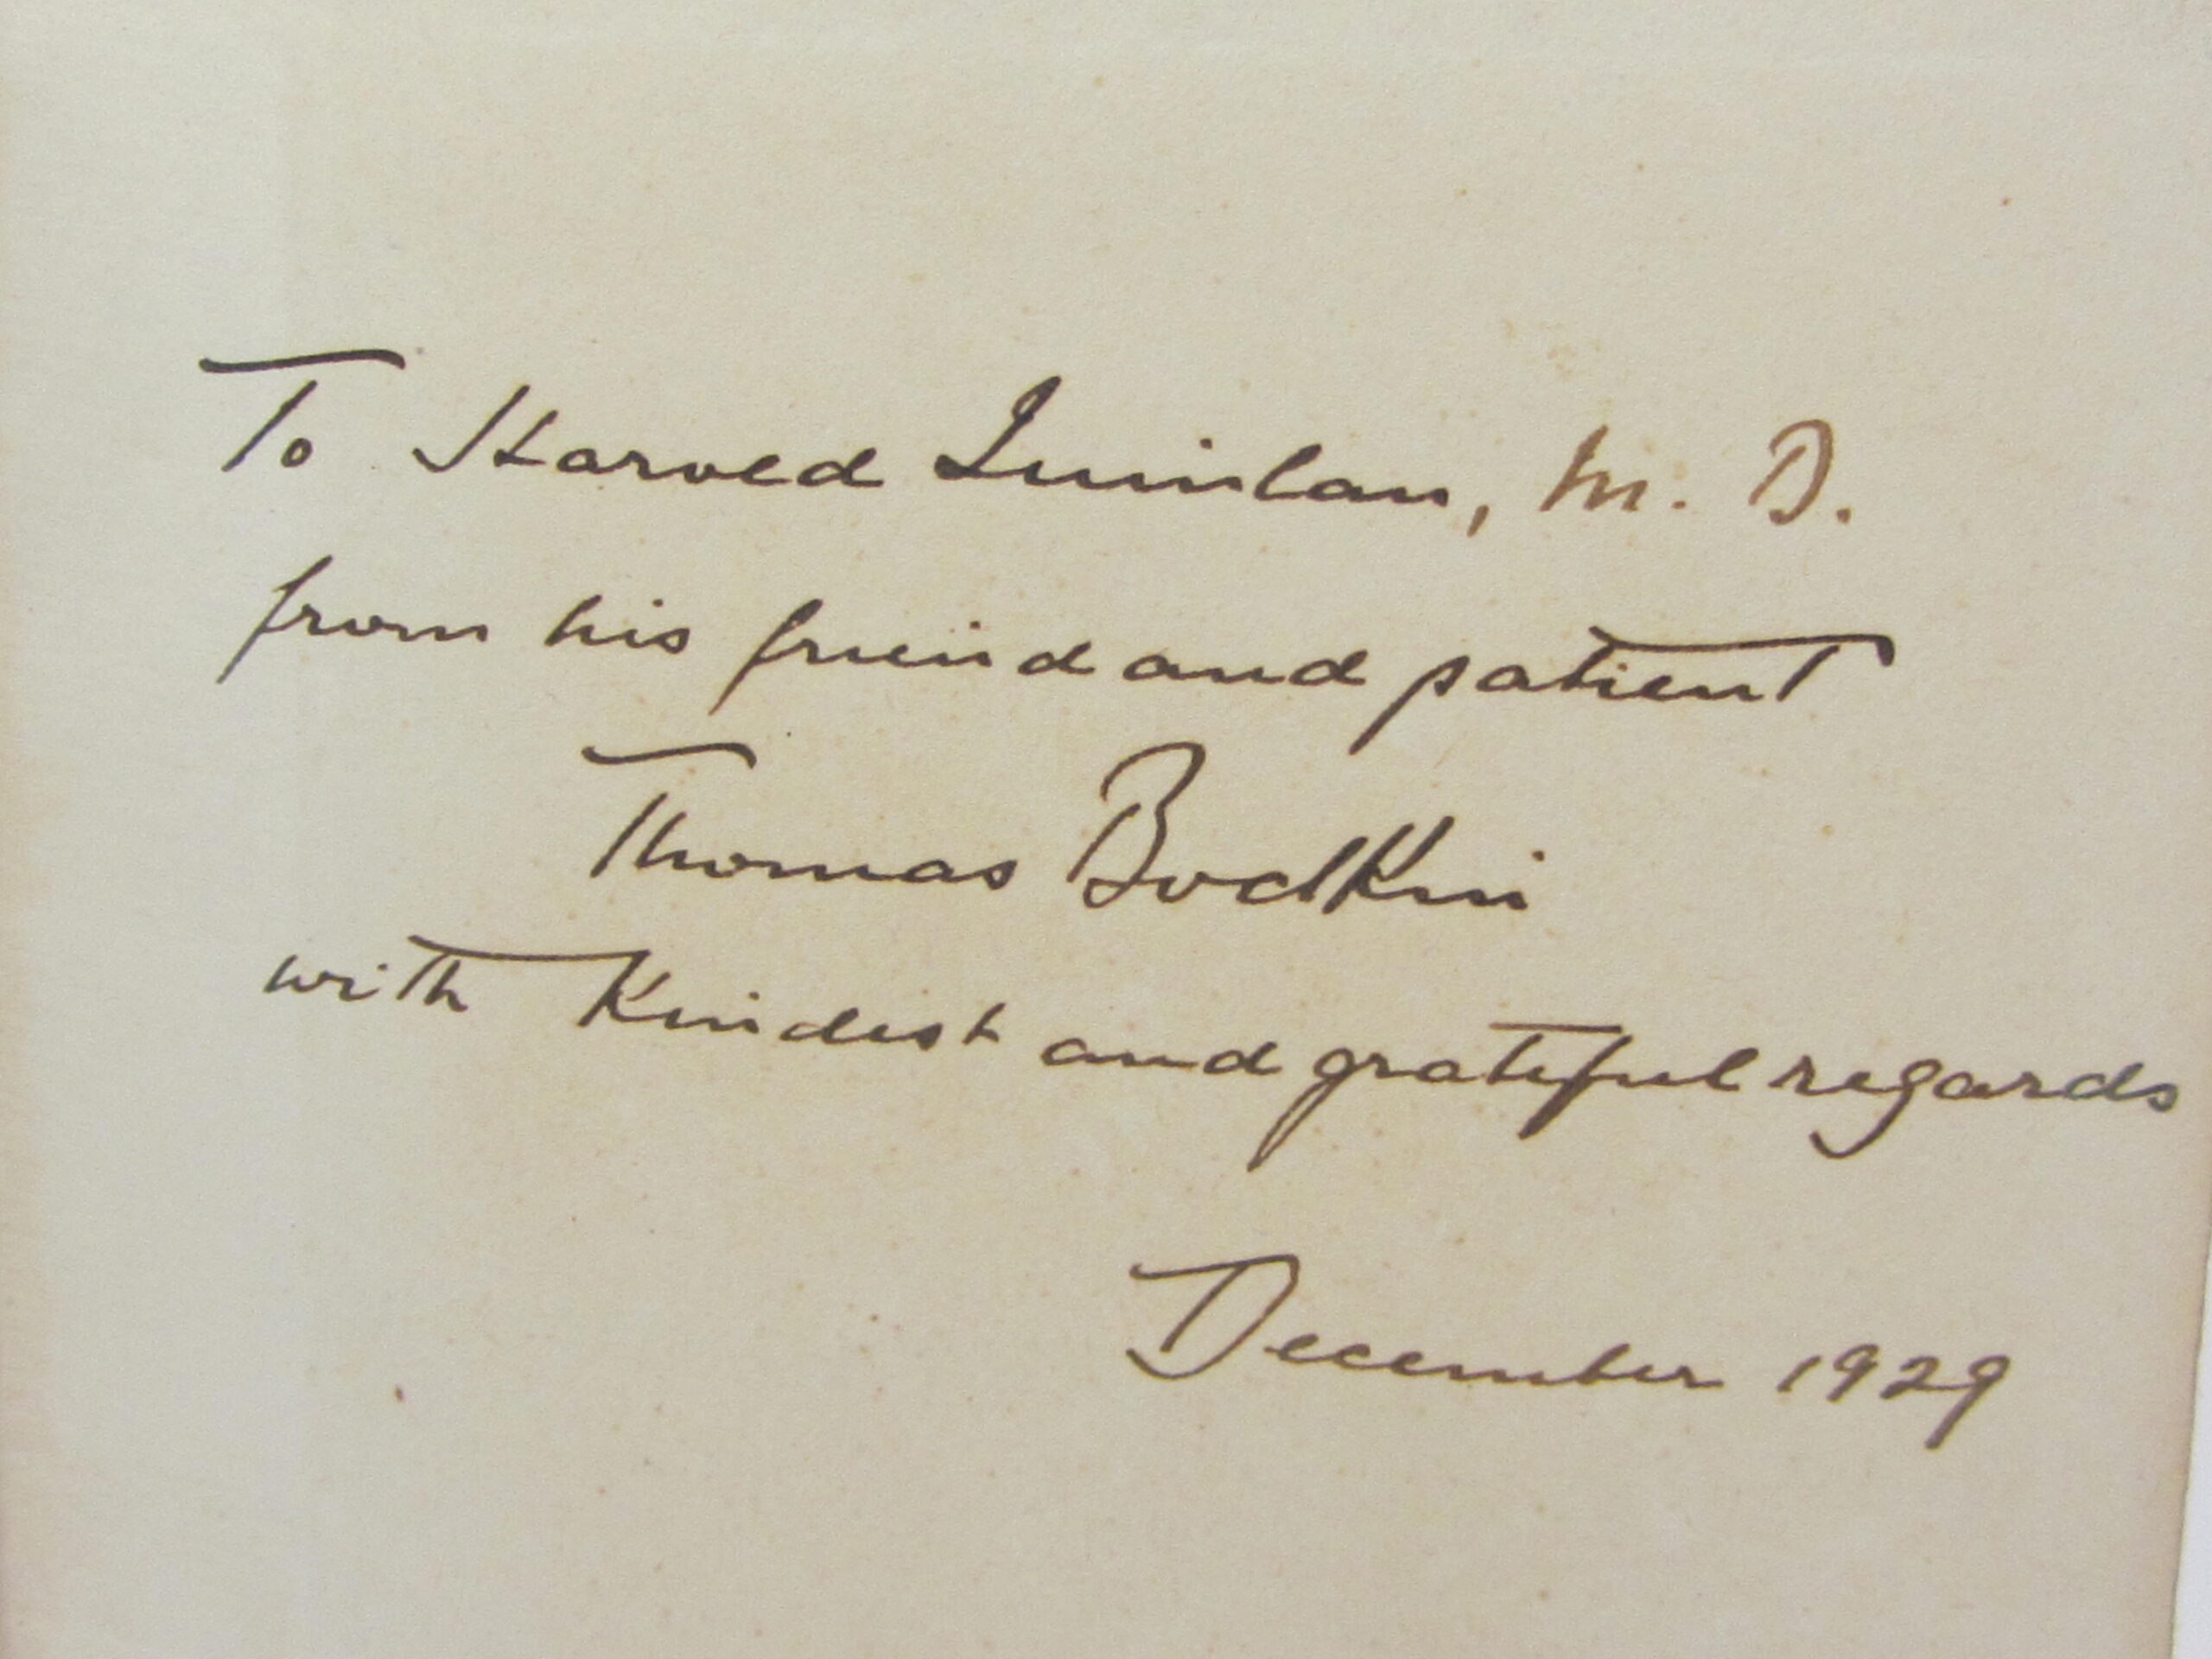 To Harold Quinlan, M. D.
from his friend and patient
Thomas Bodkin
with Kindest and grateful regards
December 1929